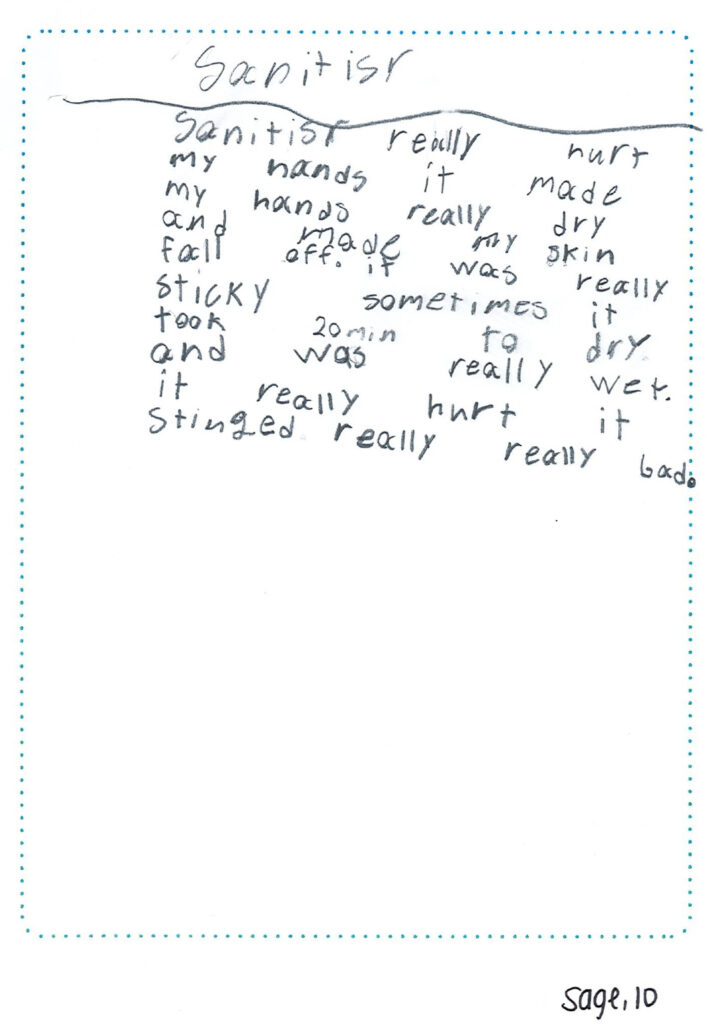 Sanitisr
Sanitisr really hurt
my hands it made
my hands really dry
and made my skin
fall off. it was really
sticky sometimes it
took 20 min to dry
and was really wet.
it really hurt it
stinged really really bad.
sage, 10